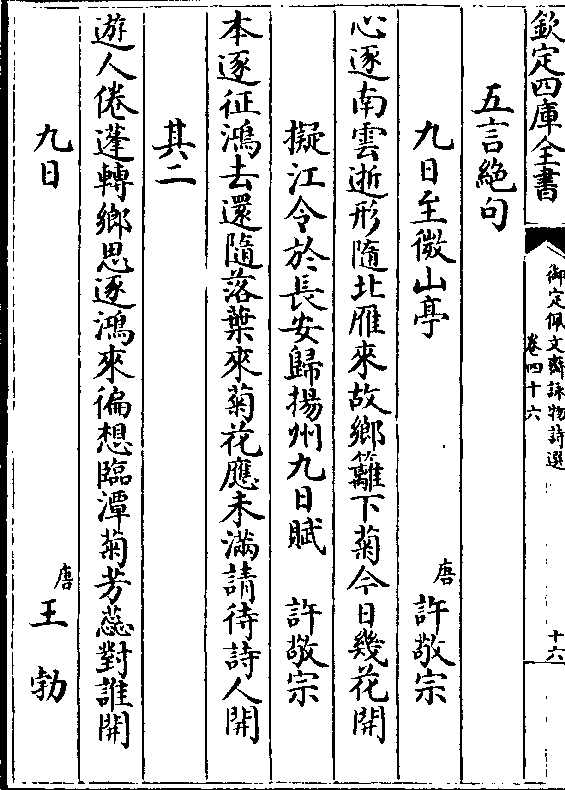 欽定四庫全書
御定佩文齋詠物詩選
卷四十六
十六
五言絶句
九日至微山亭 唐 許敬宗
心逐南雲逝形隨北雁來故鄉籬下菊今日幾花開
擬江令於長安歸揚州九日賦 許敬宗
本逐征鴻去還隨落葉來菊花應未滿請待詩人開
其二
遊人倦蓬轉鄉思逐鴻來徧想臨潭菊芳蕊對誰開
九日 唐 王勃